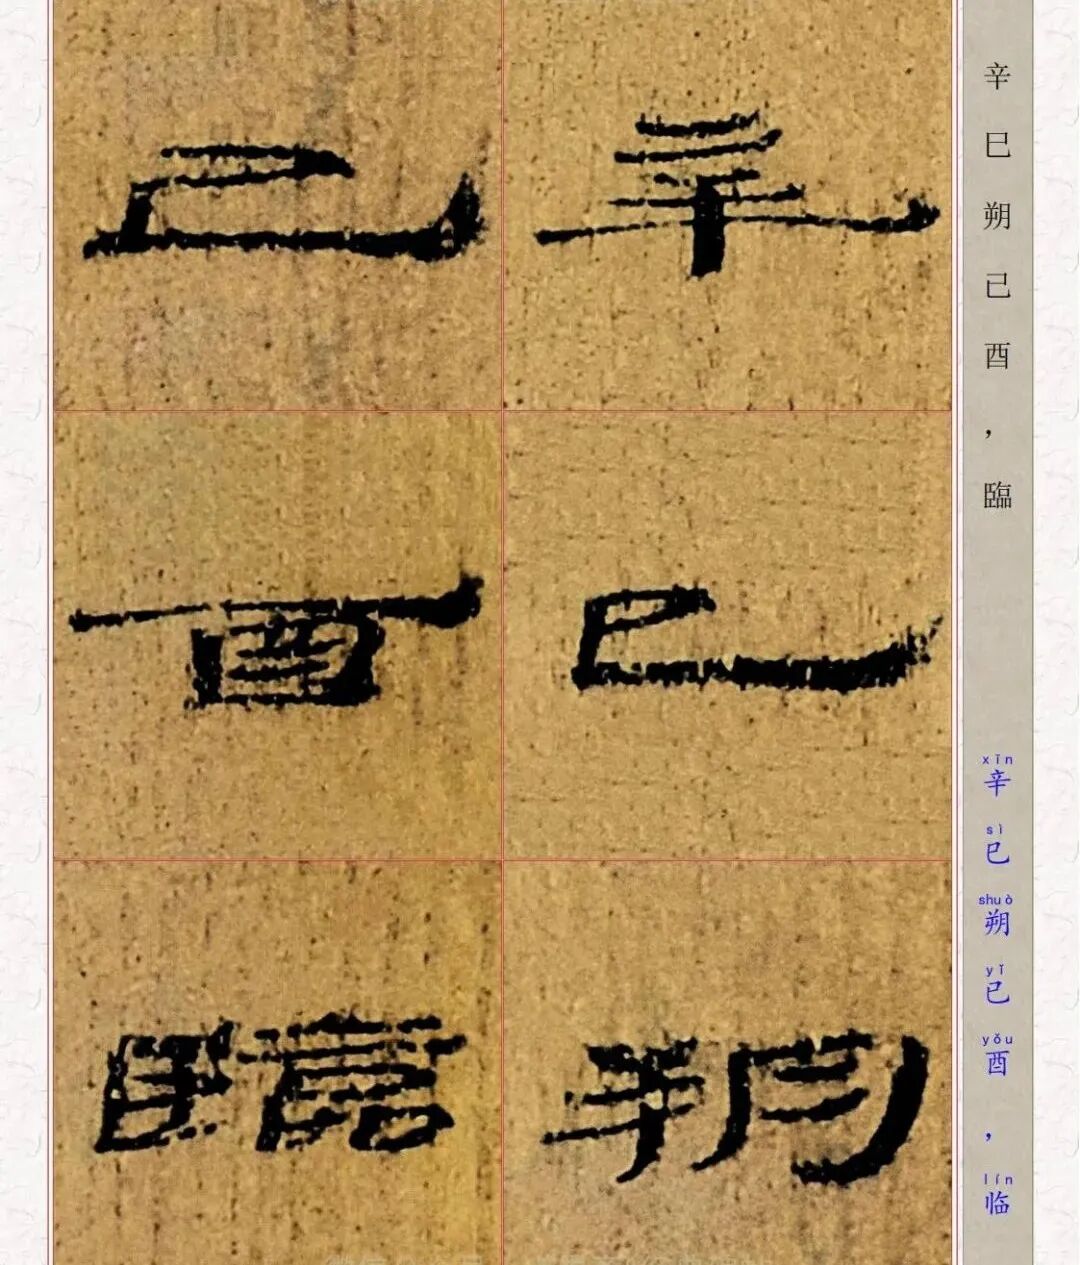 辛巳朔已酉，臨
xīn sì shuò yǐ yǒu lín
辛巳朔已酉，临
辛巳朔
已酉臨